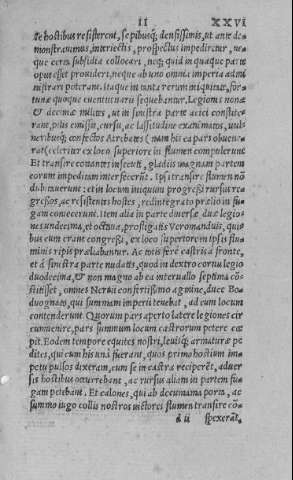 II XXVI
te hostibus resisterent, sepibusq; densissimis, ut ante de
monstrauimus, interiectis, prospectus impediretur, ne
que certa subsidia collocari, neq; quid in quaque parte
opus esset prouideri, neque ab uno omnia imperia admi
nistrari poterant. itaque in tanta rerum iniquitate, for
tunæ quoque euentus uarij sequebantur. Legionis nonæ
& decimæ milites, ut in sinistra parte acici constite-
rant, pilis emissis, cursu, ac lassitudine exanimatos, uul-
neribusq; confectos Atrebates (nam his ea pars obuene
rat) celeriter ex loco superiore in flumen compulerunt.
Et transire conantes insecuti, gladijs magnam partem
eorum impeditam interfecerũt. Ipsi transire flumen nõ
dubitauerunt: et in locum iniquum progressi rursus re
gressos, ac resistentes hostes, redintegrato prælio in fu-
gam coniecerunt. Item alia in parte diuersæ duæ legio-
nes undecima, et octaua, profligatis Veromanduis, qui
bus cum erant congressi, ex loco superiore in ipsis flu-
minis ripis præliabantur. At totis ferè castris à fronte,
et à sinistra parte nudatis, quod in dextro cornu legio
duodecima, & non magno ab ea interuallo septima cõ
stitisset, omnes Neruij confertissimo agmine, duce Bo-
duognato, qui summam imperij tenebat, ad eum locum
contenderunt. Quorum pars aperto latere legiones cir
cumuenire, pars summum locum castrorum petere cœ
pit. Eodem tempore equites nostri, leuisq; armaturæ pe
dites, qui cum his unà fuerant, quos primo hostium im-
petu pulsos dixeram, cum se in castra reciperẽt, aduer
sis hostibus occurrebant, ac rursus aliam in partem fu-
gam petebant. Et calones, qui ab decumana porta, ac
summo iugo collis nostros uictores flumen transire cõ-
d ii spexerãt,